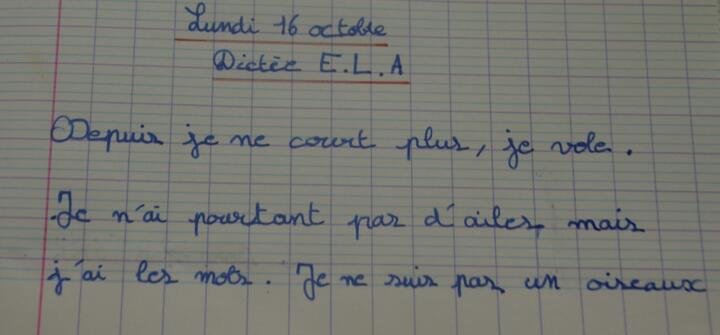 Lundi 16 octobre
Dictée E.L.A
Depuis je ne court plus, je vole.
Je n'ai pourtant pas d'ailes, mais
j'ai les mots. Je ne suis pas un oiseaux